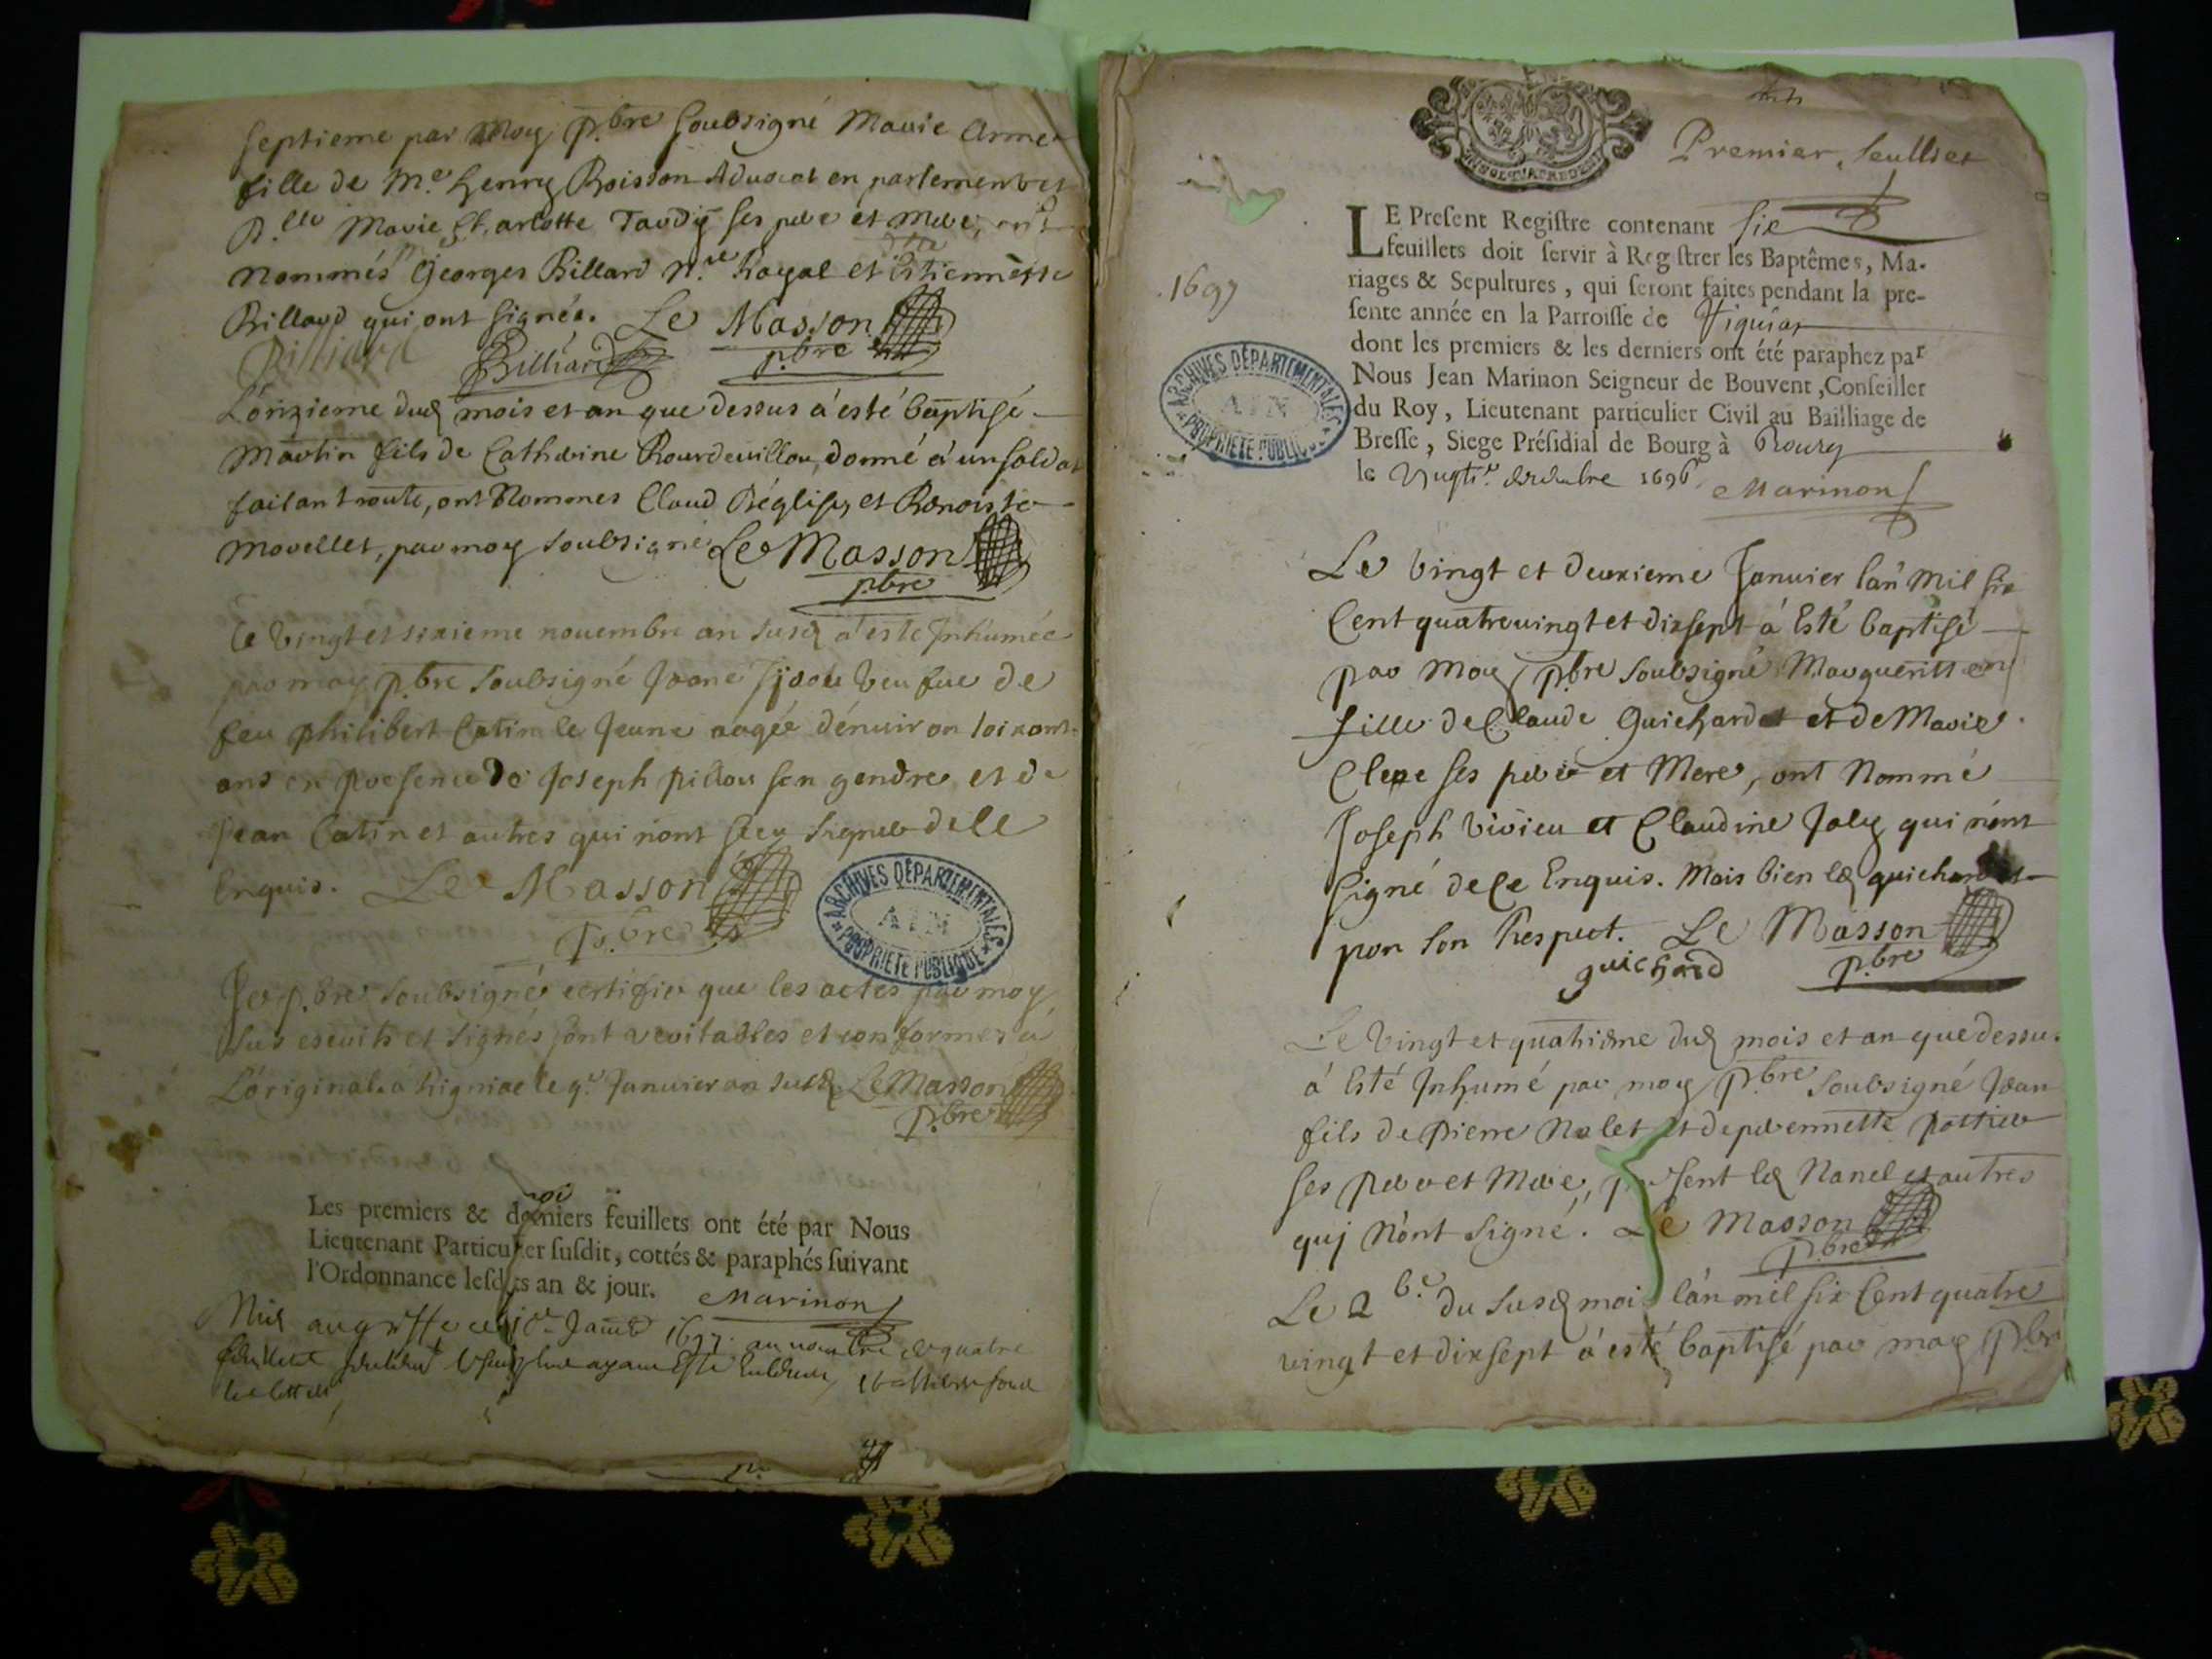 septieme par Moy p.bre soubsigné Marie Anne
fille de M.e henry Boisson Aduocat en parlement et
D.lle Marie Charlotte Tardy ses pere et Mere, ont
Nommés Georges Billard N.re Royal et Estiennette
Billard qui ont signés. Le Masson
Billiard Billiard p.bre
L'onzieme dud mois et an que dessus a esté baptisé
Martin fils de Catherine Bourdeuillon, donné a un soldat
faisant route, ont Nommes Claud Déglise, et Benoiste
Morellet, par moy soubsigné Le Masson
p.bre
Le vingt et sixieme nouembre an susd a esté Inhumée
par moy p.bre soubsigné Jeane veufue de
feu philibert Catin le Jeune aagée d'enuiron soixante
ans en presence de Joseph pillou son gendre et de
Jean Catin et autres qui n'ont sceu signer de ce
Enquis. Le Masson
p.bre
ARCHIVES DÉPARTEMENTALES
AIN
PROPRIETE PUBLIQUE
Je p.bre soubsigné certifie que les actes par moy
sus escrits et signés sont veritables et conformes a
L'original. a Rigniac le 9.e Januier an susd Le Masson
p.bre
Les premiers & derniers feuillets ont été par Nous
Lieutenant Particulier susdit, cottés & paraphés suivant
l'Ordonnance lesdits an & jour. Marinon
Mis au greffe ce 1697. au nombre de quatre
feuillets
Premier feuillet
LE Present Registre contenant six
feuillets doit servir à Registrer les Baptêmes, Ma-
riages & Sepultures, qui seront faites pendant la pre-
1697
sente année en la Parroisse de
dont les premiers & les derniers ont été paraphez par
Nous Jean Marinon Seigneur de Bouvent, Conseiller
du Roy, Lieutenant particulier Civil au Bailliage de
Bresse, Siege Présidial de Bourg à Bourg
le 1696 Marinon
ARCHIVES DÉPARTEMENTALES
AIN
PROPRIETE PUBLIQUE
Le vingt et deuxieme Januier lan mil six
Cent quatreuingt et dixsept a Esté baptisé
par Moy p.bre soubsigné Margueritte
fille de Claude Guichard et de Marie
Clere ses pere et Mere, ont Nommé
Joseph vivieu et Claudine Joly qui n'ont
signé de ce Enquis. Mais bien led guichard
pour son Respect. Le Masson
guichard p.bre
Le vingt et quatrieme dud mois et an que dessus
a Esté Inhumé par moy p.bre soubsigné Jean
fils de pierre Nalet et de pierrenette pottier
ses pere et Mere, present led Nanel et autres
quj N'ont signé. Le Masson
p.bre
Le 26.e du susd mois l'an mil six Cent quatre
vingt et dixsept a esté baptisé par moy p.bre